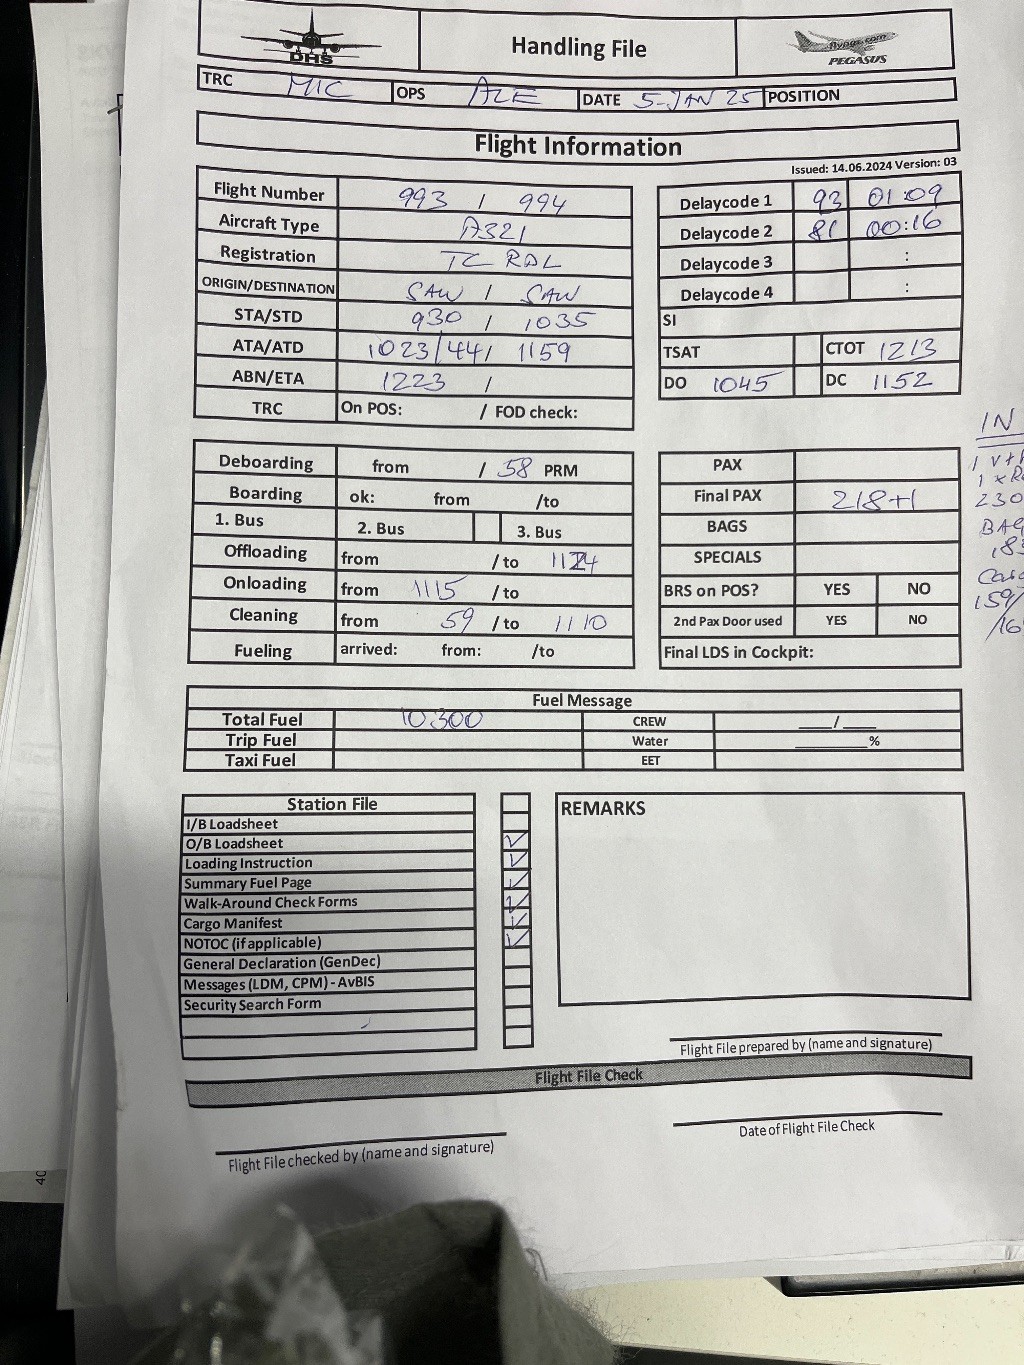 DHS
Handling File
flypgs.com
PEGASUS
TRC MIC OPS ALE DATE 5-JAN 25 POSITION
Flight Information
Issued: 14.06.2024 Version: 03
Flight Number 993 / 994
Aircraft Type A321
Registration TC RDL
ORIGIN/DESTINATION SAW / SAW
STA/STD 930 / 1035
ATA/ATD 1023/44/ 1159
ABN/ETA 1223 /
TRC On POS: / FOD check:
Delaycode 1 93 01:09
Delaycode 2 81 00:16
Delaycode 3 :
Delaycode 4 :
SI
TSAT CTOT 1213
DO 1045 DC 1152
Deboarding from / 58 PRM
Boarding ok: from /to
1. Bus 2. Bus 3. Bus
Offloading from / to
Onloading from 1115 / to
Cleaning from 59 / to 1110
Fueling arrived: from: /to
PAX
Final PAX 218+1
BAGS
SPECIALS
BRS on POS? YES NO
2nd Pax Door used YES NO
Final LDS in Cockpit:
IN
230
159/
Fuel Message
Total Fuel 10300 CREW ____/____
Trip Fuel Water ________%
Taxi Fuel EET
Station File
I/B Loadsheet
O/B Loadsheet ✓
Loading Instruction ✓
Summary Fuel Page ✓
Walk-Around Check Forms ✓
Cargo Manifest ✓
NOTOC (if applicable) ✓
General Declaration (GenDec)
Messages (LDM, CPM) - AvBIS
Security Search Form
REMARKS
Flight File prepared by (name and signature)
Flight File Check
Flight File checked by (name and signature)
Date of Flight File Check
40